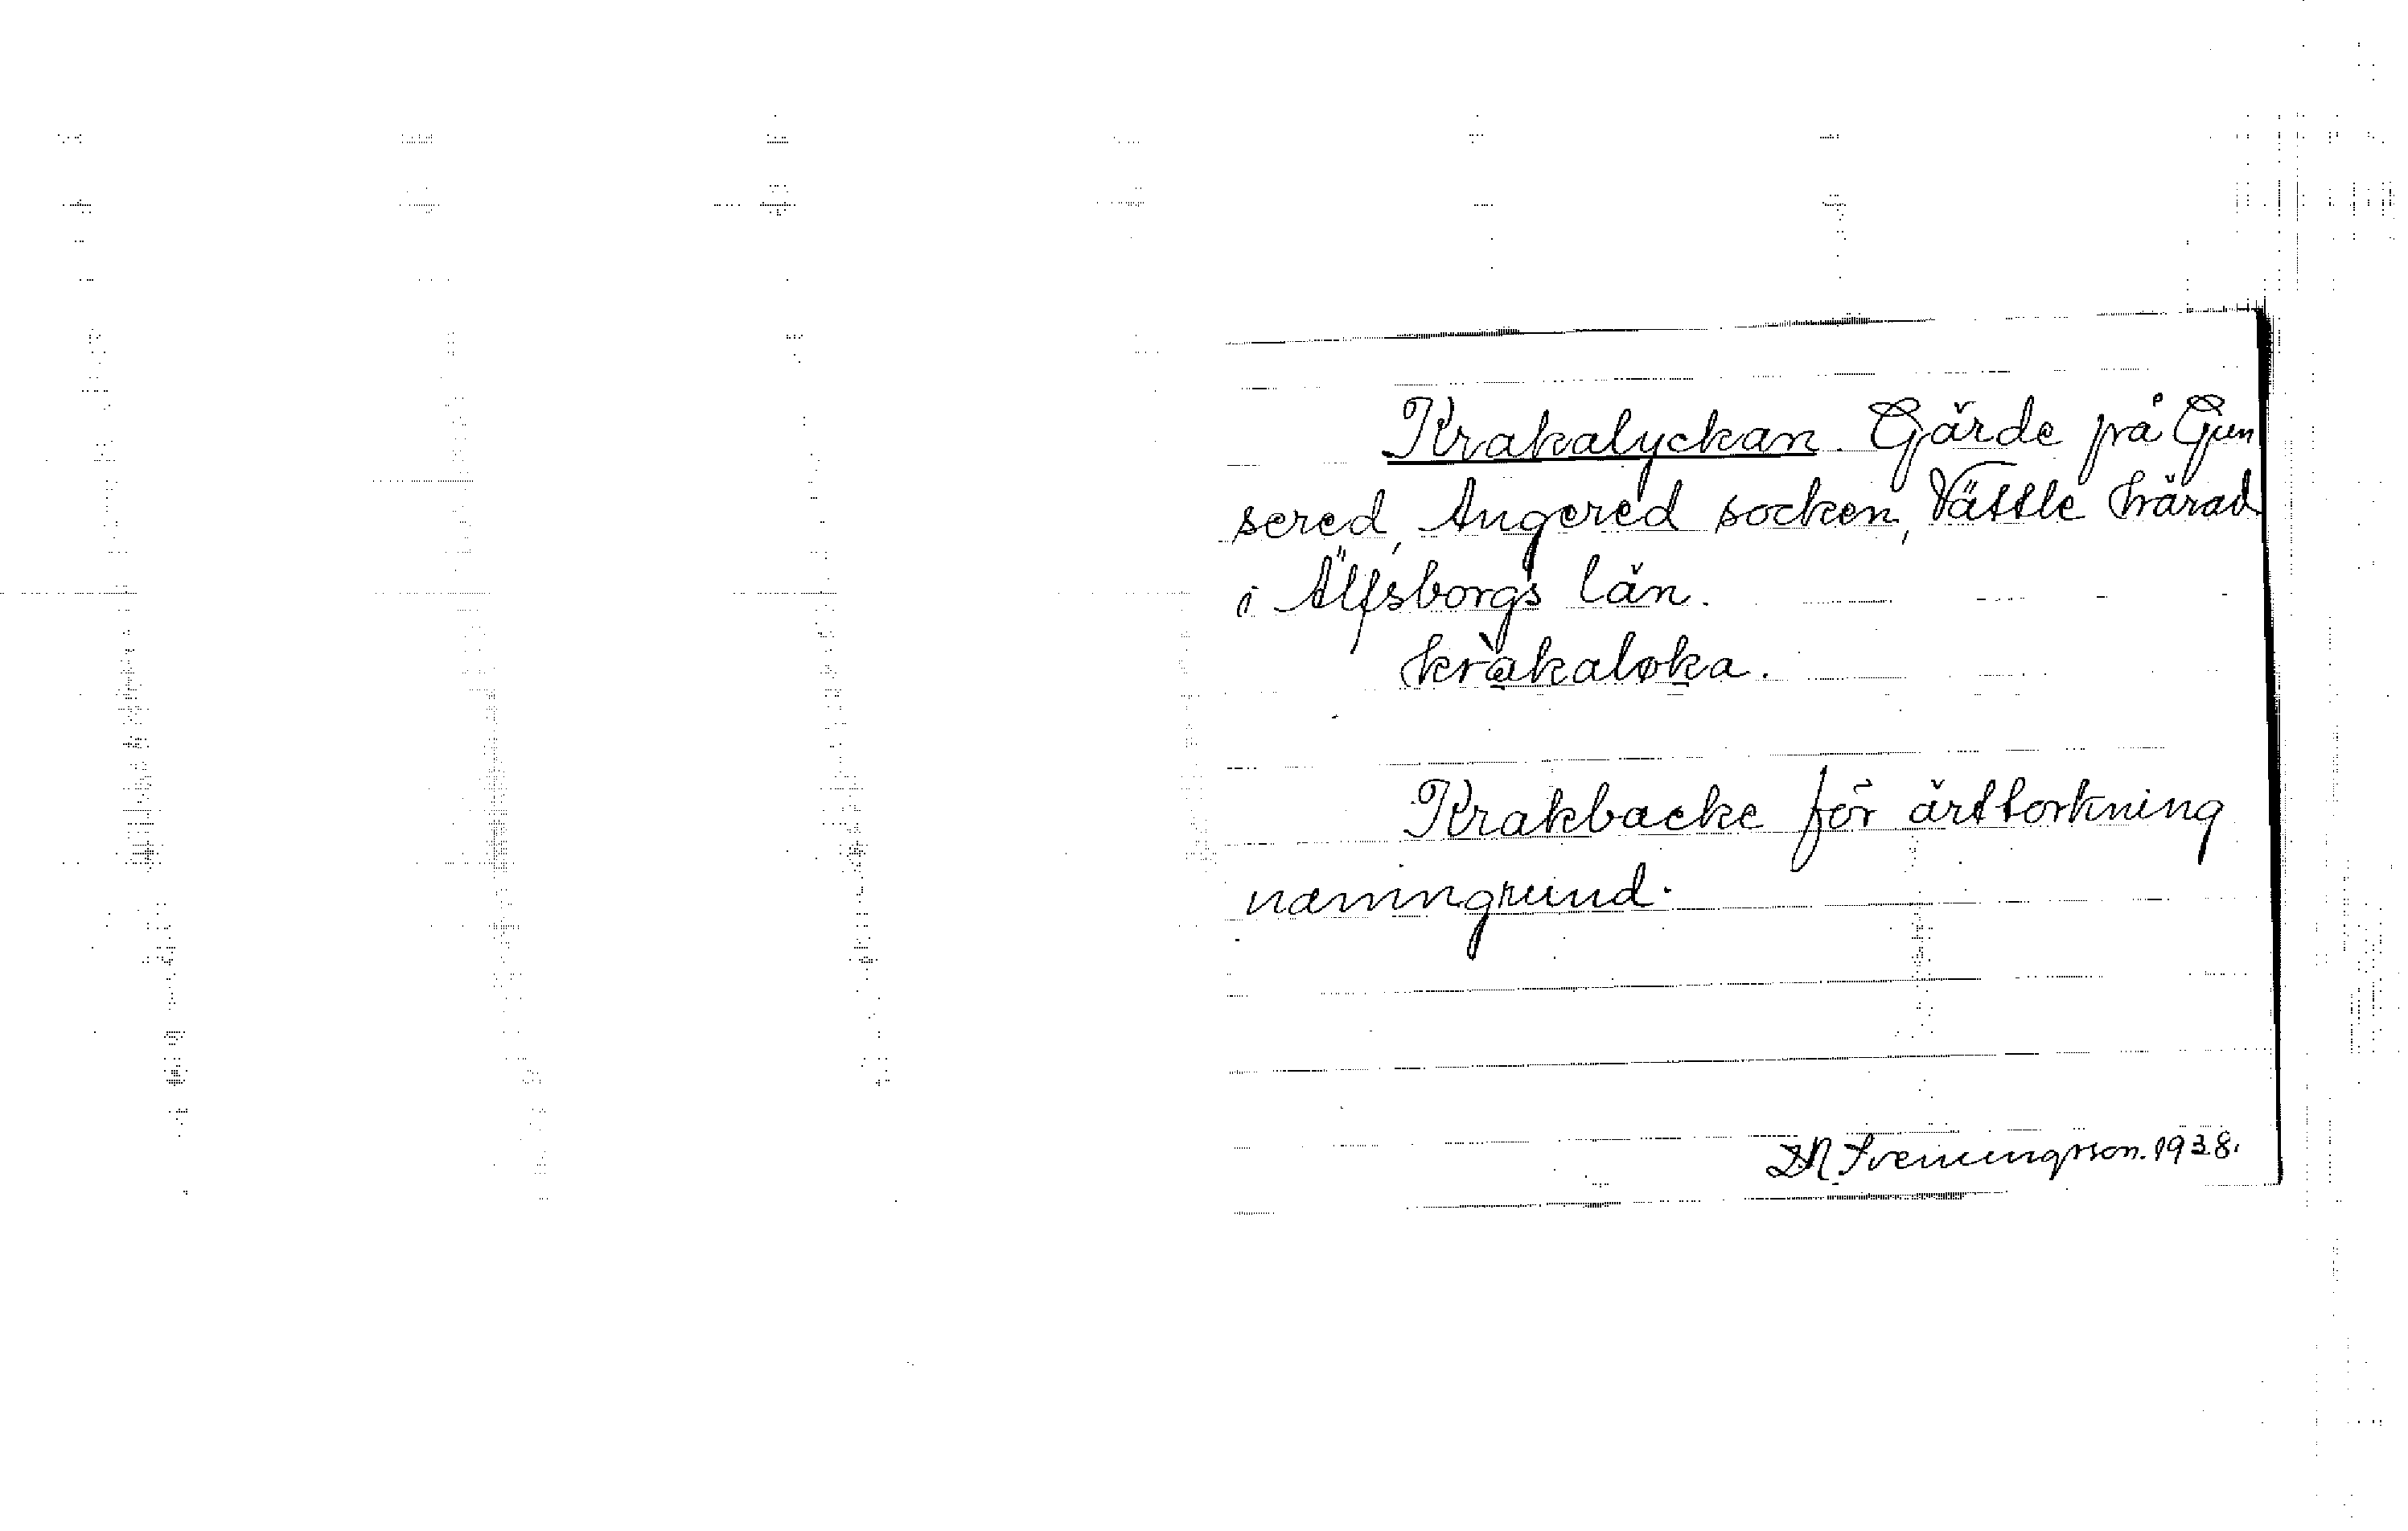 Krakalyckan. Gärde på Gun
sered, Angered socken, Vättle härad
i Älfsborgs län.
kràkaloka.
Krakbacke för ärttorkning
namngrund.
Sveningsson. 1938.